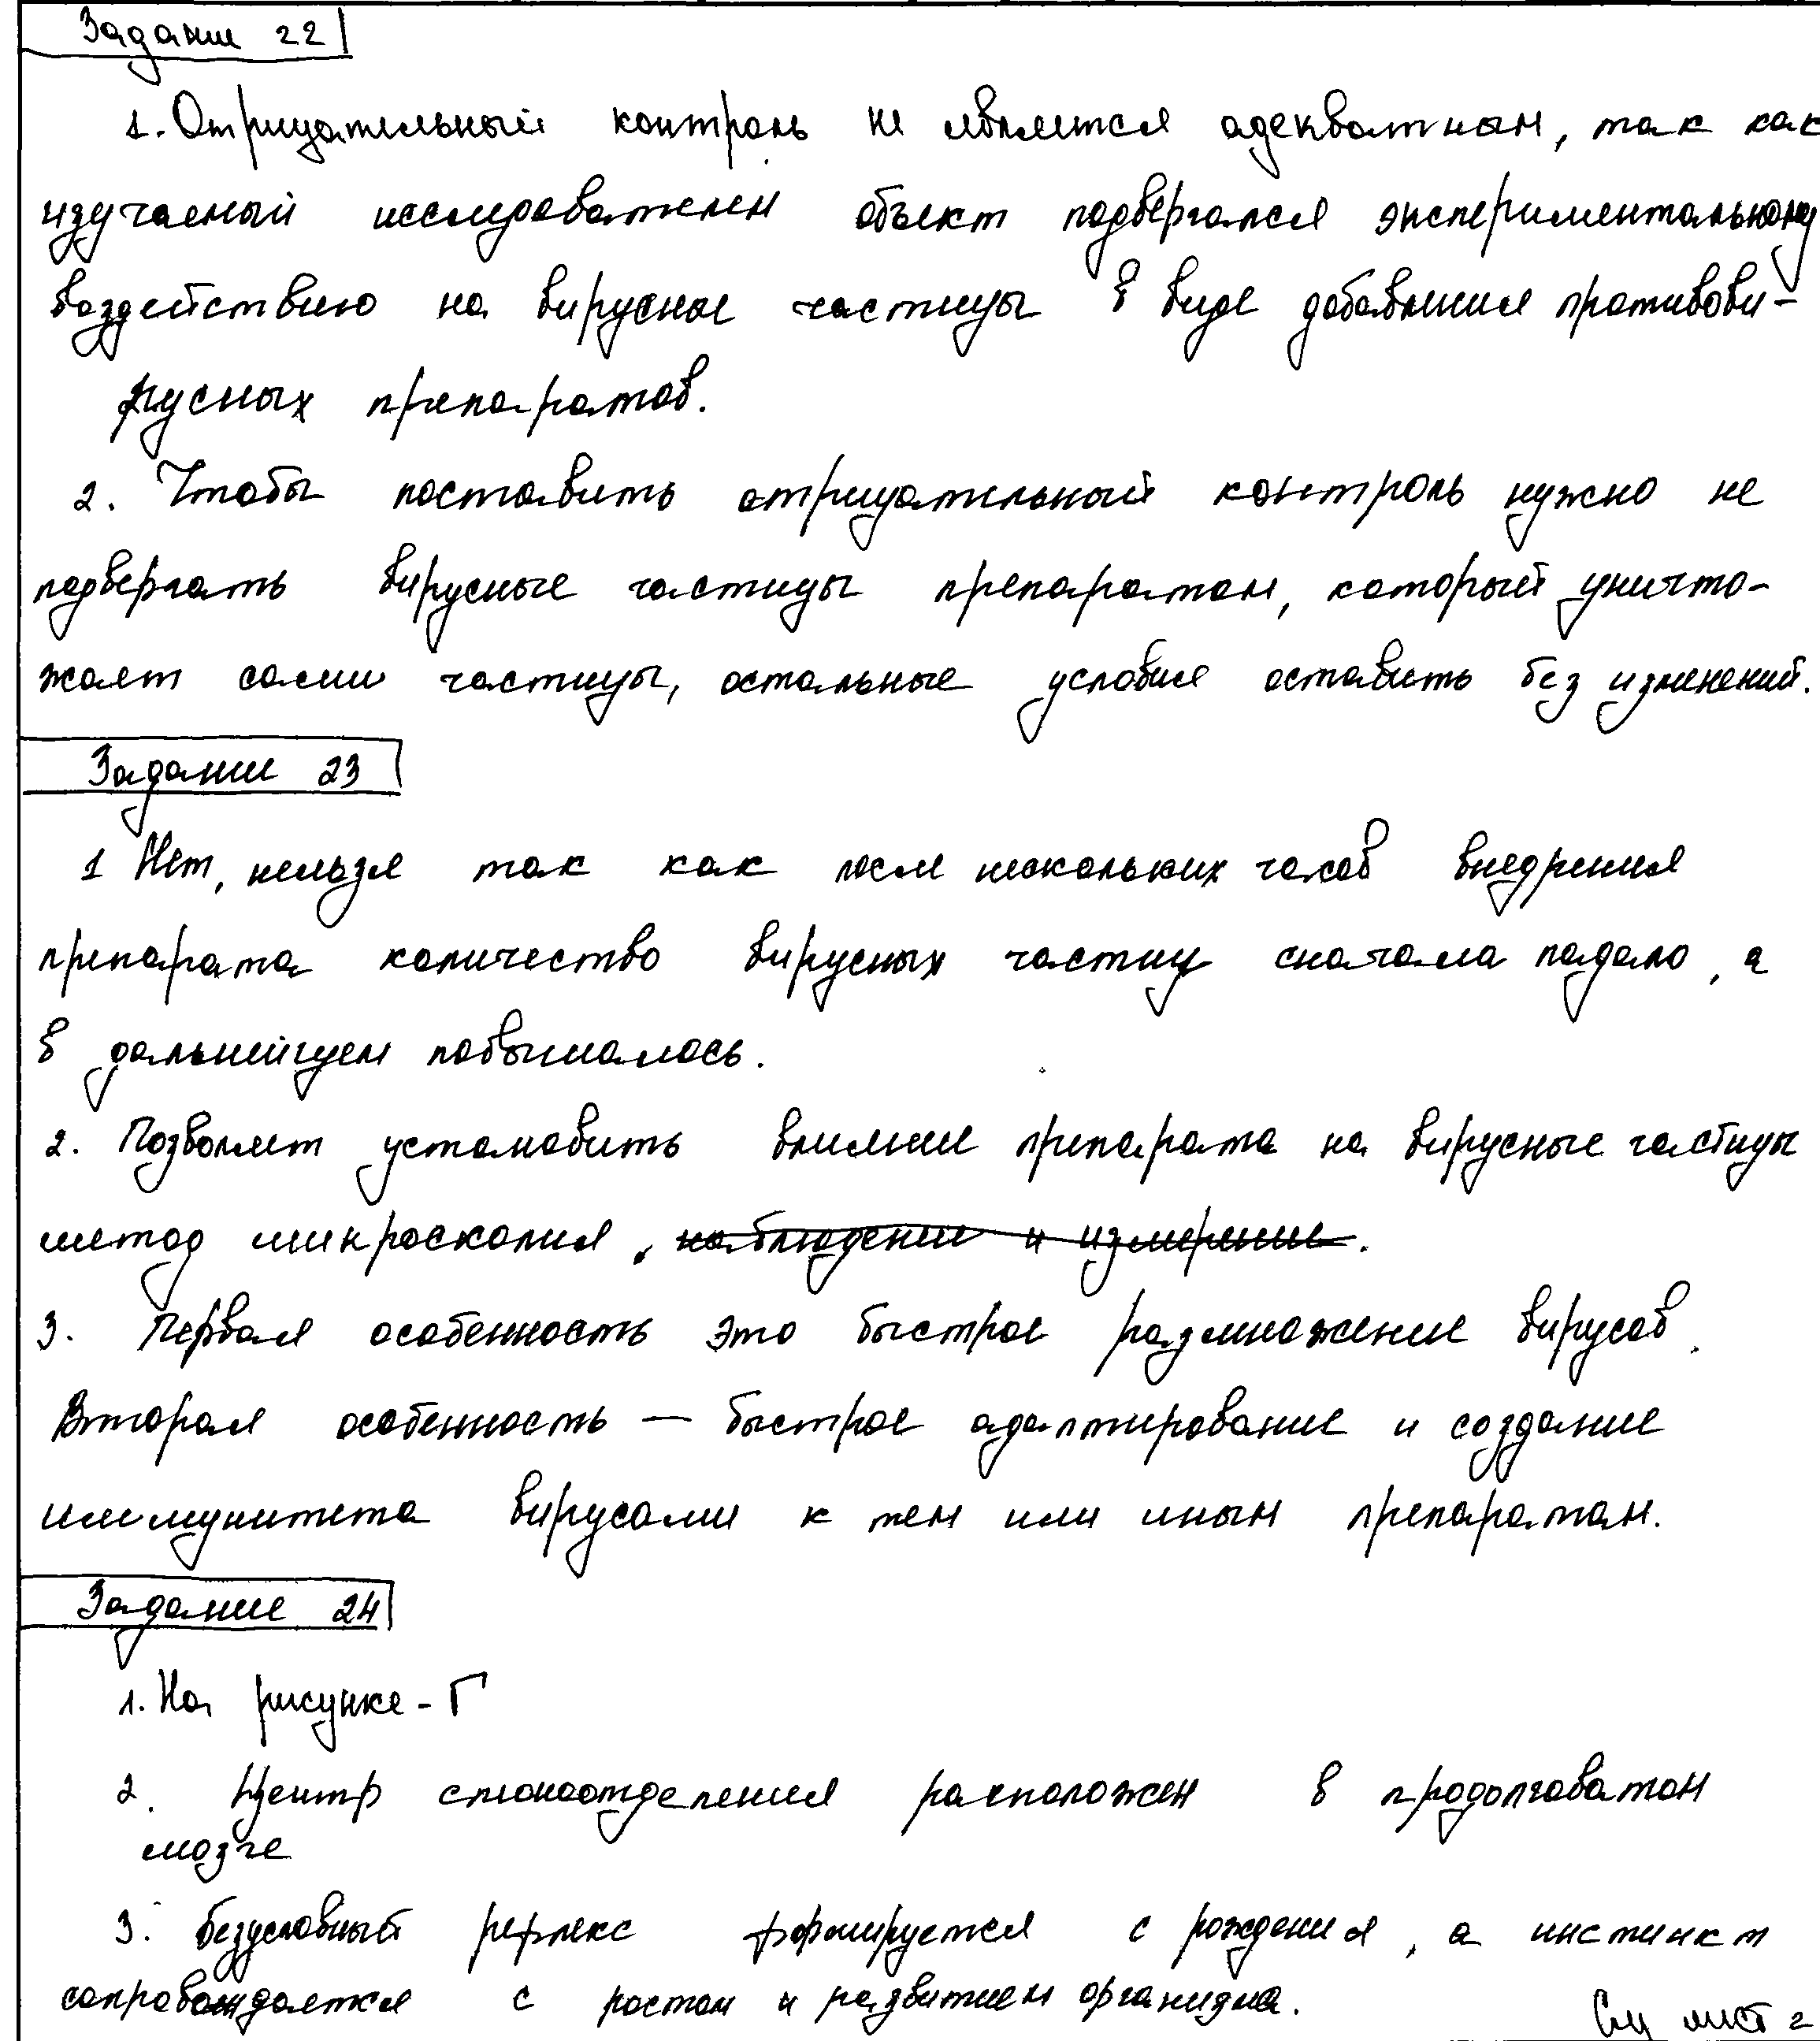 Задание 22
1. Отрицательный контроль не является адекватным, так как
изучаемый исследователем объект подвергался экспериментальному
воздействию на вирусные частицы в виде добавления противови-
русных препаратов.
2. Чтобы поставить отрицательный контроль нужно не
подвергать вирусные частицы препаратом, который уничто-
жает сами частицы, остальные условия оставить без изменений.
Задание 23
1 Нет, нельзя так как после нескольких часов внедрения
препарата количество вирусных частиц сначала падало, а
в дальнейшем повышалось.
2. Позволяет установить влияние препарата на вирусные частицы
метод микроскопия, наблюдение и измерение.
3. Первая особенность это быстрое размножение вирусов.
Вторая особенность — быстрое адаптирование и создание
иммунитета вирусами к тем или иным препаратам.
Задание 24
1. На рисунке - Г
2. Центр слюноотделения расположен в продолговатом
мозге
3. Безусловный рефлекс формируется с рождения, а инстинкт
сопровождается с ростом и развитием организма.
См лист 2